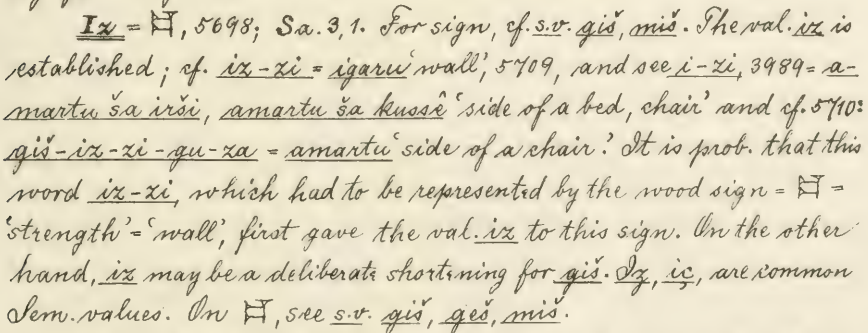 Iz = 𒄑, 5698; Sa. 3, 1. For sign, cf. s.v. giš, miš. The val. iz is
established; cf. iz-zi = igaru 'wall', 5709, and see i-zi, 3989 = a-
martu ša irši, amartu ša kussê 'side of a bed, chair' and cf. 5710:
giš-iz-zi-gu-za = amartu 'side of a chair.' It is prob. that this
word iz-zi, which had to be represented by the wood sign = 𒄑 =
'strength' = 'wall', first gave the val. iz to this sign. On the other
hand, iz may be a deliberate shortening for giš. Iz, iç, are common
Sem. values. On 𒄑, see s.v. giš, geš, miš.